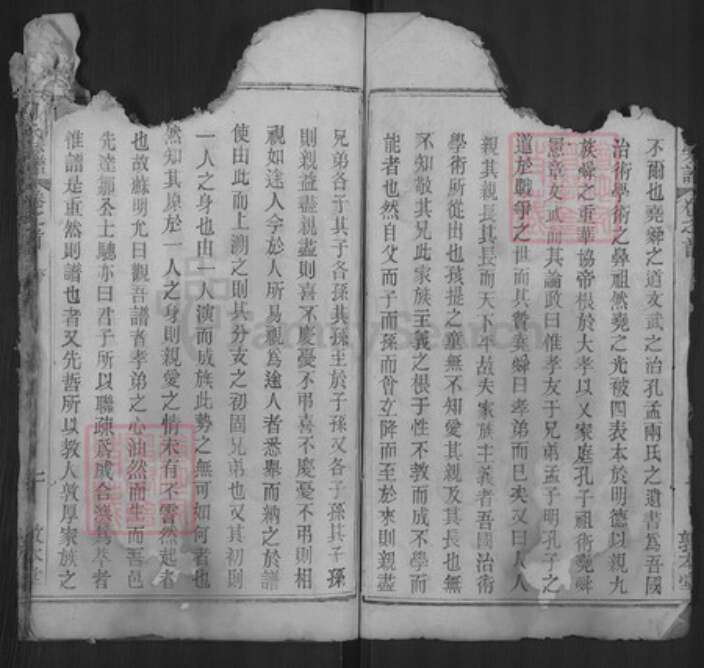 不爾也堯舜之道文武之治孔孟兩氏之遺書爲吾國
治術學術之鼻祖然堯之光被四表本於明德以親九
族舜之重華協帝根於大孝以乂家庭孔子祖術堯舜
憲章文武而其論政曰惟孝友于兄弟孟子明孔子之
道於戰爭之世而其贊堯舜曰孝弟而已矣又曰人人
親其親長其長而天下平故夫家族主義者吾國治術
學術所從由也孩提之童無不知愛其親及其長也無
不知敬其兄此家族主義之根于性不教而成不學而
能者也然自父而子而孫而曾玄降而至於來則親盡
兄弟各子其子各孫其孫至於子孫又各子孫其子孫
則親益盡親盡則喜不慶憂不弔喜不慶憂不弔則相
視如途人今於人所易視爲途人者悉舉而納之於譜
使由此而上溯之則其分支之初固兄弟也又其初則
一人之身也由一人演而成族此勢之無可如何者也
然知其原於一人之身則親愛之情未有不油然起者
也故蘇明允曰觀吾譜者孝弟之心油然而生而吾邑
先達鄒公士驄亦曰君子所以聯疎爲戚合渙其萃者
惟譜是重然則譜也者又先哲所以教人敦厚家族之
卷之首
序
敦本堂